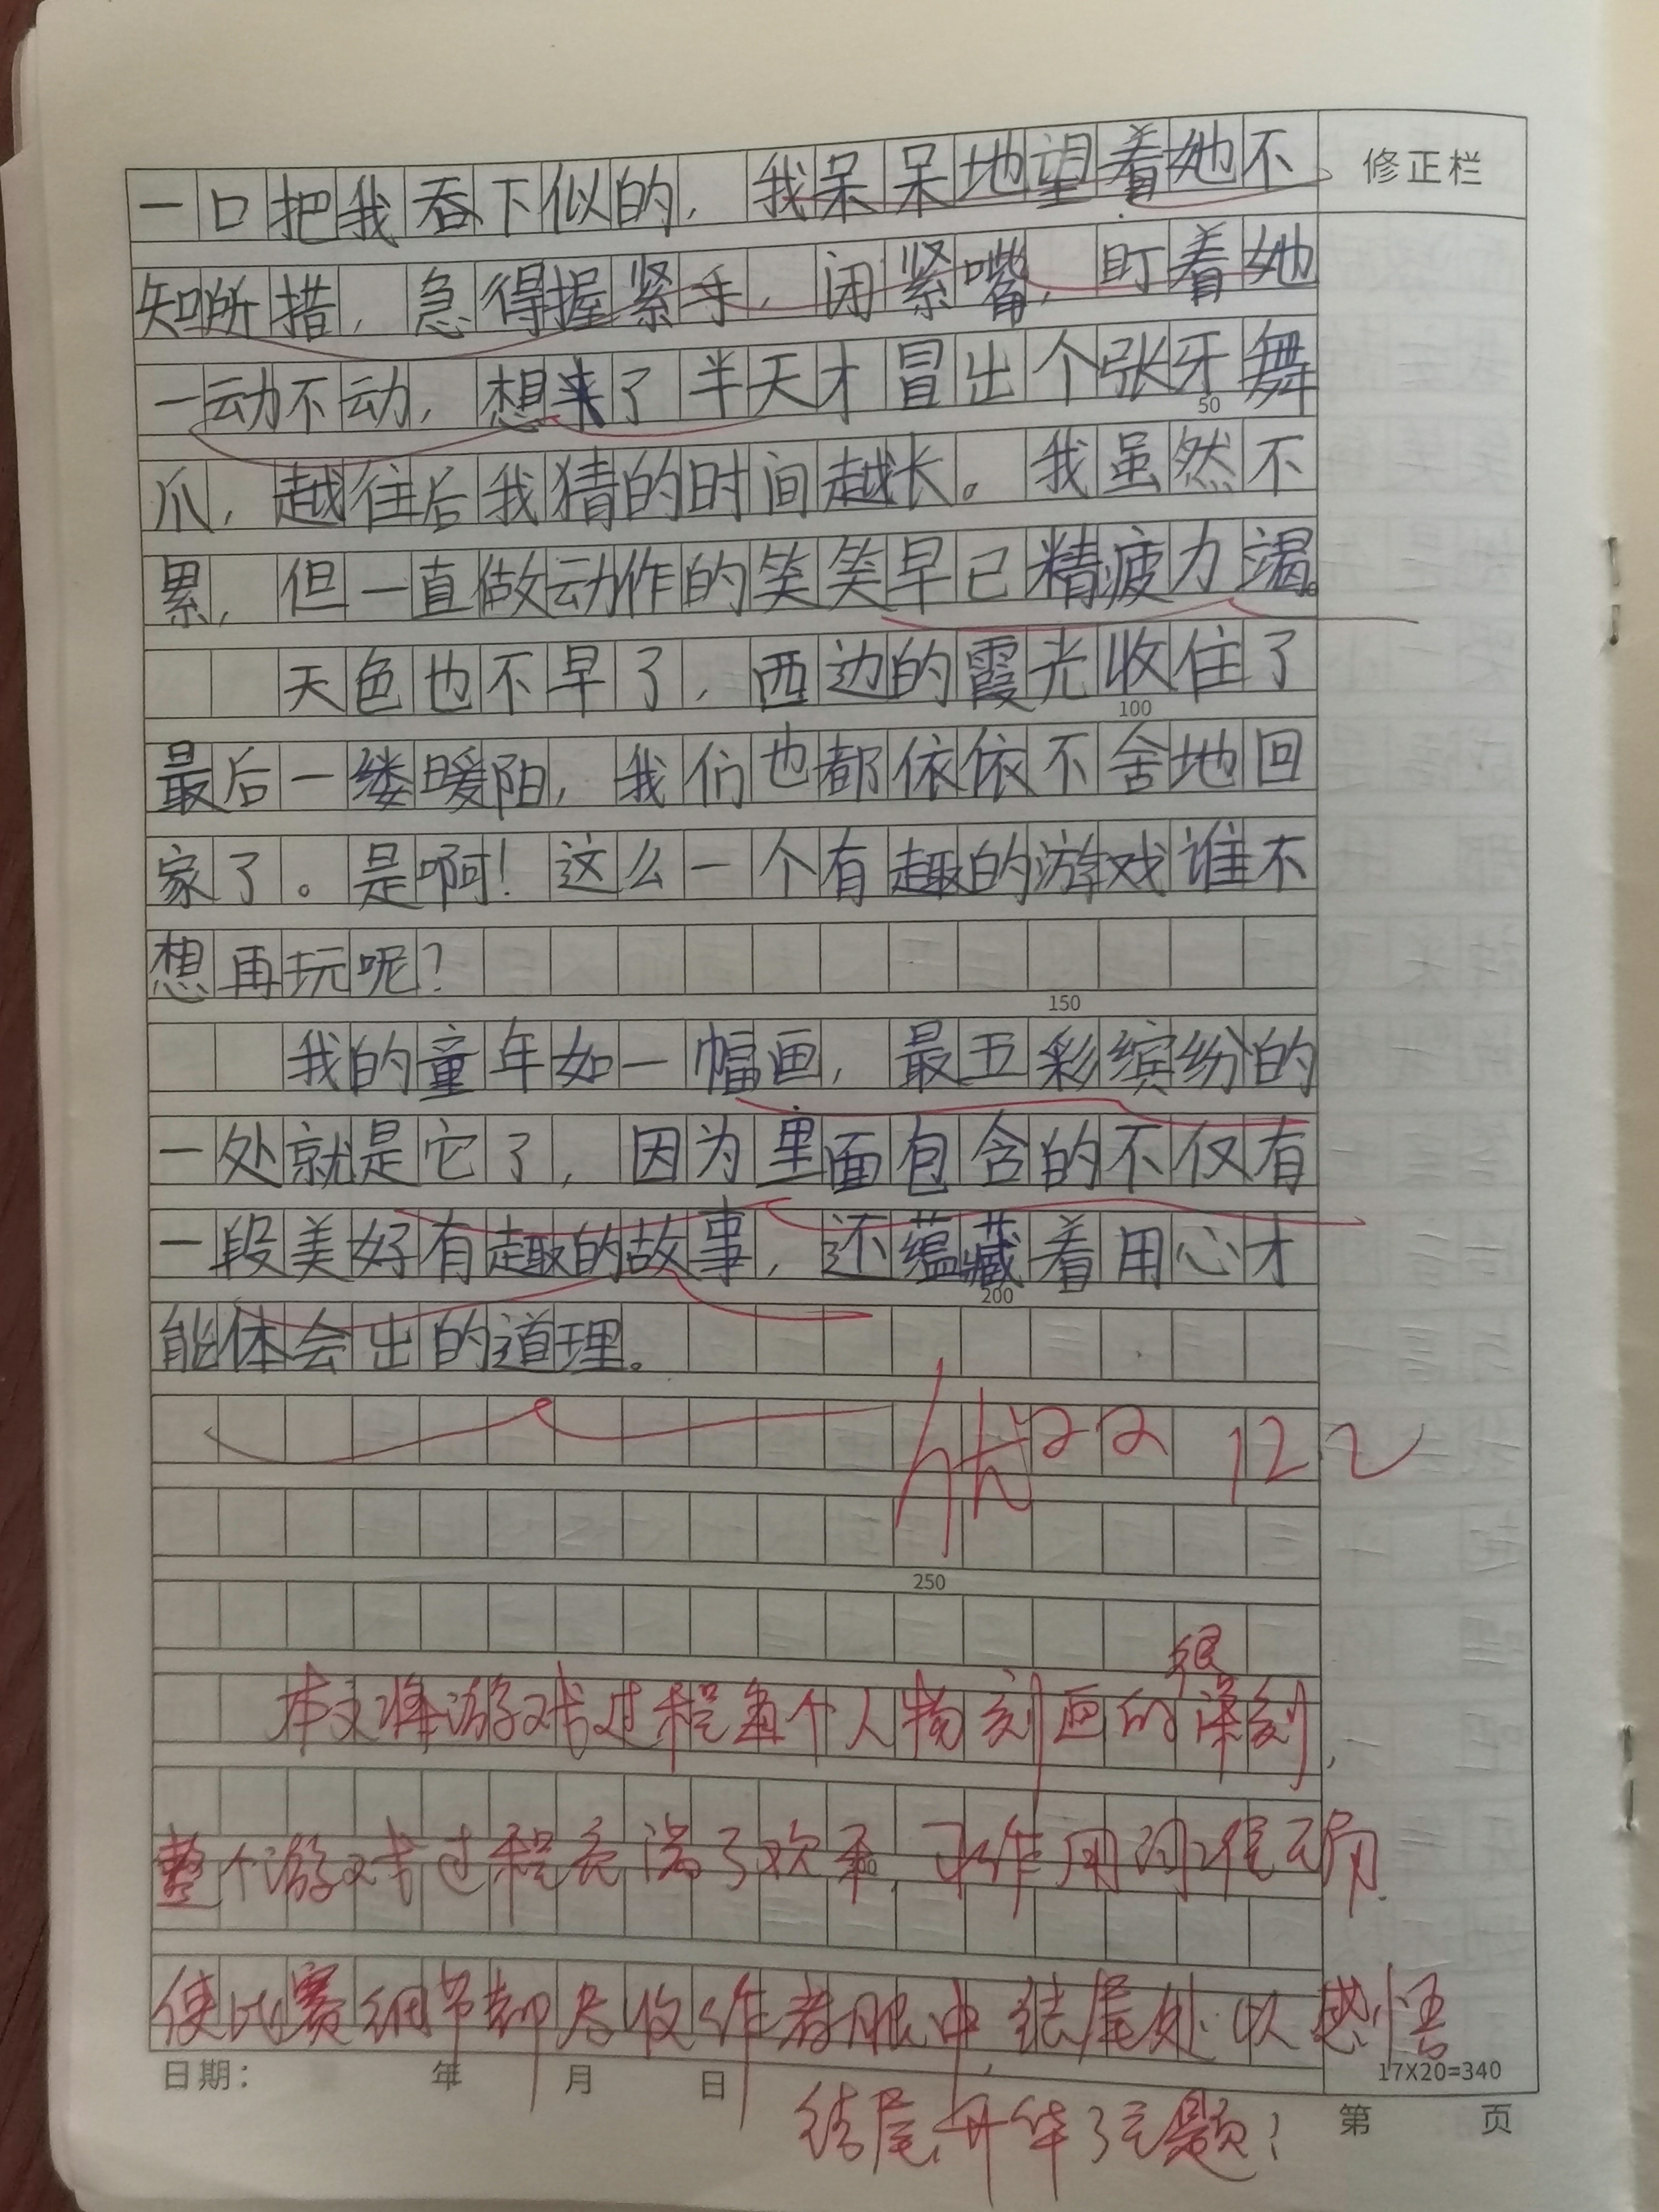 一口把我吞下似的，我呆呆地望着她不
修正栏
知所措，急得握紧手，闭紧嘴，盯着她
一动不动，想来了半天才冒出个张牙舞
50
爪，越往后我猜的时间越长。我虽然不
累，但一直做动作的笑笑早已精疲力竭。
天色也不早了，西边的霞光收住了
100
最后一缕暖阳，我们也都依依不舍地回
家了。是啊！这么一个有趣的游戏谁不
想再玩呢？
150
我的童年如一幅画，最五彩缤纷的
一处就是它了，因为里面包含的不仅有
一段美好有趣的故事，还蕴藏着用心才
200
能体会出的道理。
优
250
很
本文将游戏过程每个人物刻画的深刻，
整个游戏过程充满了欢乐，动作用词准确，
使比赛细节都尽收作者眼中，结尾处以感悟
17X20=340
日期： 年 月 日
结尾，升华了主题！
第 页